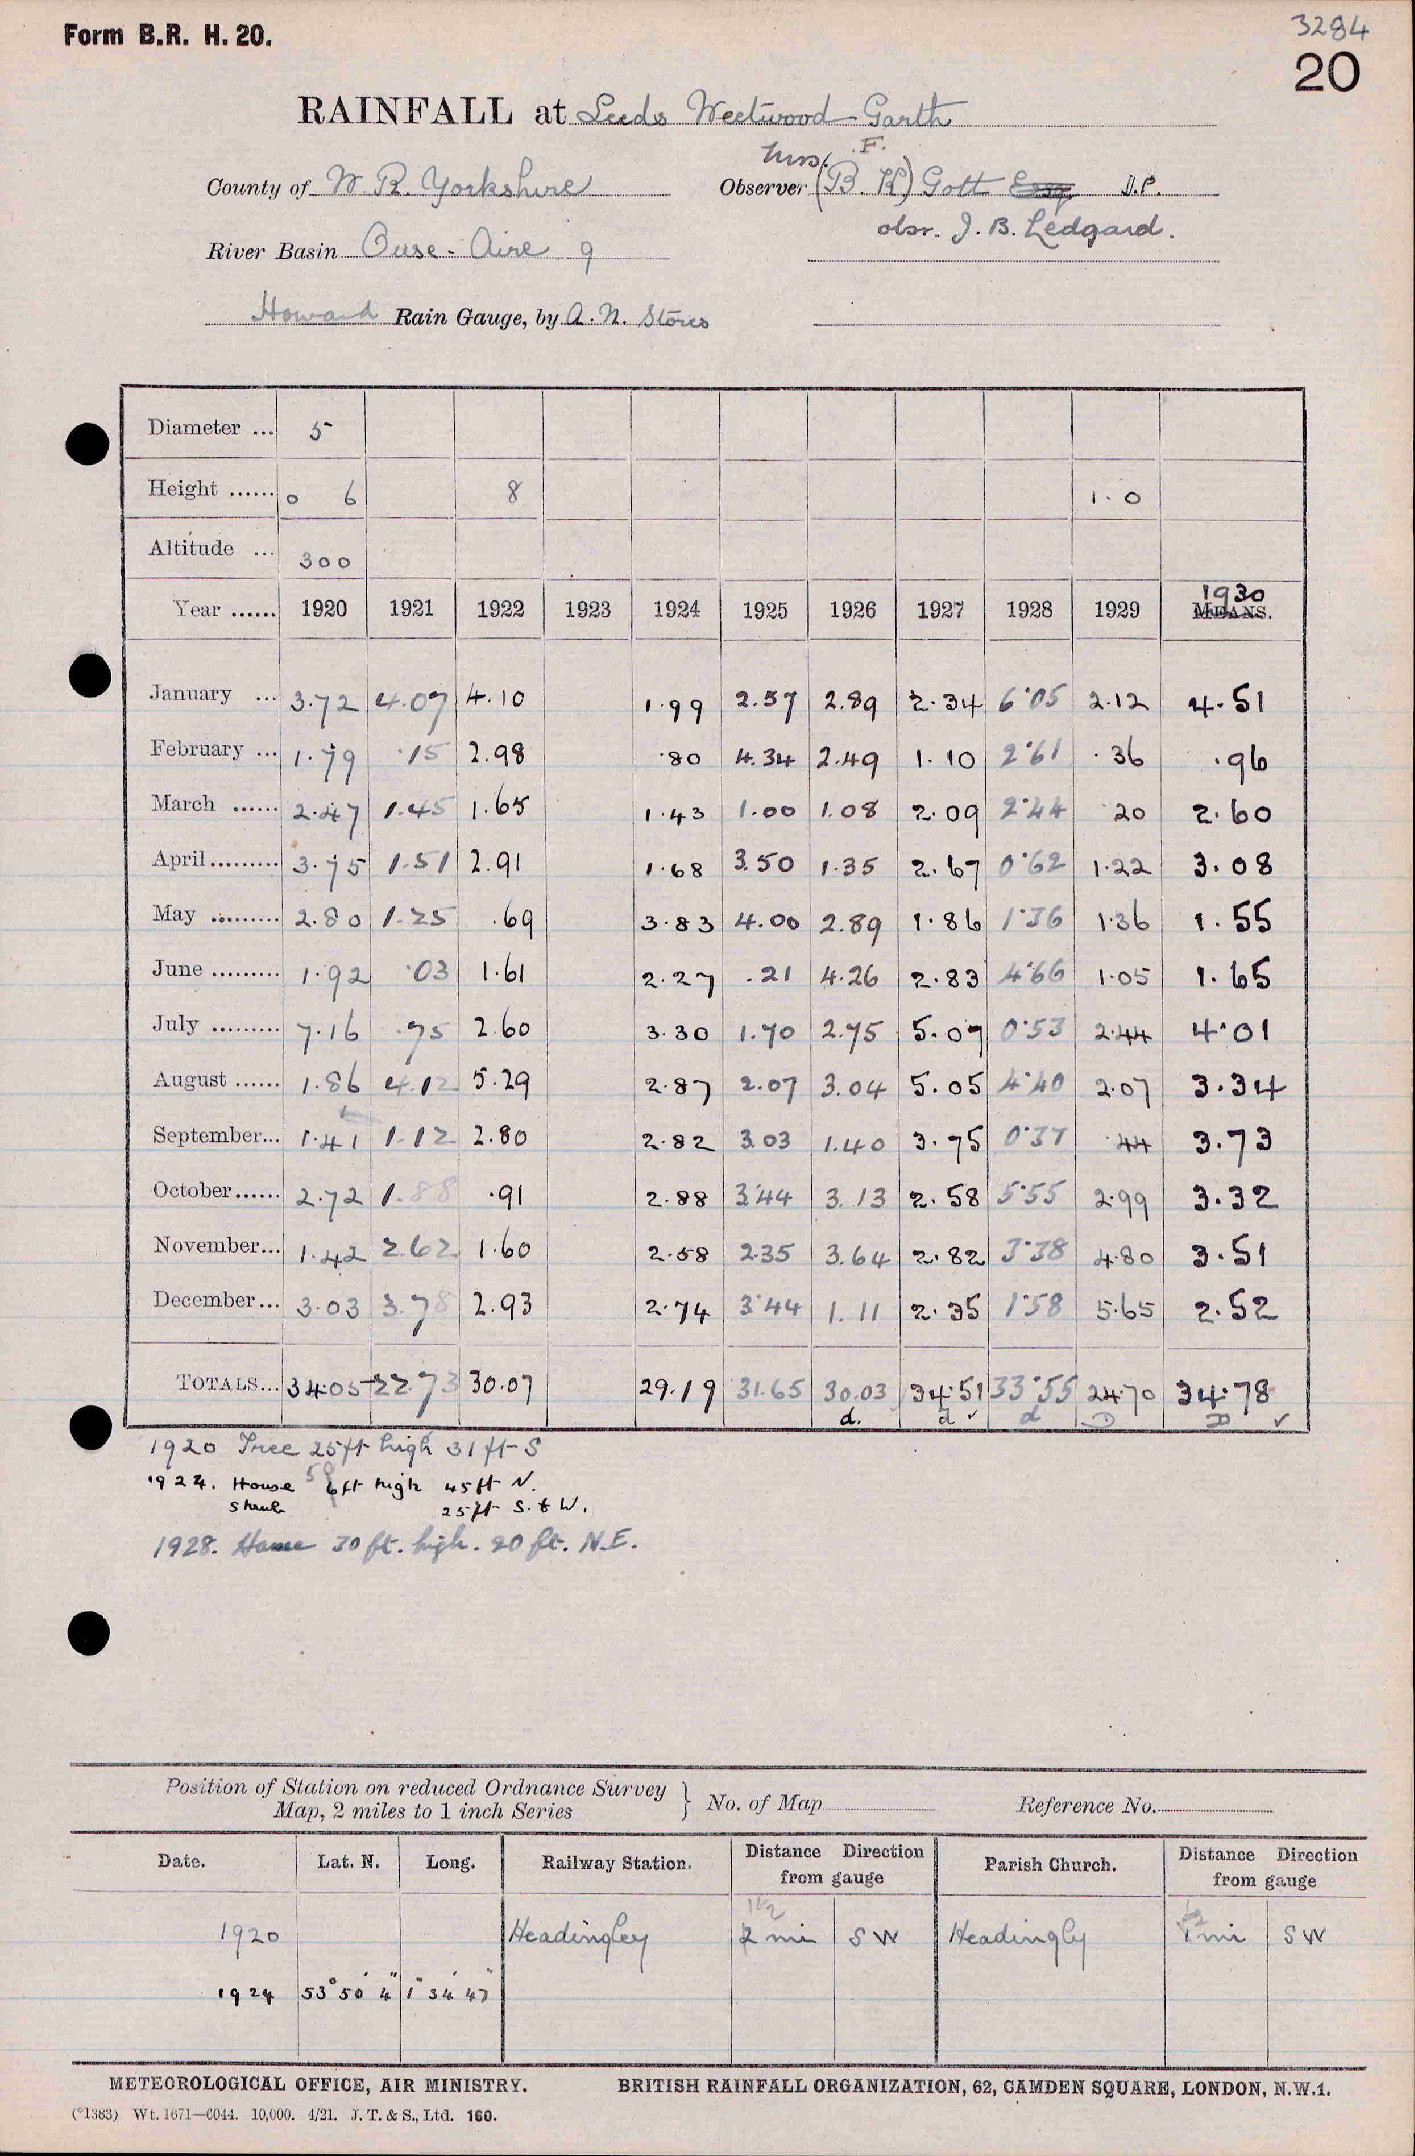 Form B.R. H. 20.
3284
20
RAINFALL at Leeds Weetwood Garth
Mrs. F.
County of W. R. Yorkshire Observer (B. K) Gott Esq. J.P.
obsr. J. B. Ledgard.
River Basin Ouse - Aire 9
Howard Rain Gauge, by A. N. Stores
Diameter ... 5
Height ...... 0 6 8 1. 0
Altitude ... 300
1930
Year ...... 1920 1921 1922 1923 1924 1925 1926 1927 1928 1929 MEANS.
January ... 3.72 4.07 4.10 1.99 2.57 2.89 2.34 6.05 2.12 4.51
February ... 1.79 .15 2.98 .80 4.34 2.49 1.10 2.61 .36 .96
March ...... 2.47 1.45 1.65 1.43 1.00 1.08 2.09 2.44 .20 2.60
April......... 3.75 1.51 2.91 1.68 3.50 1.35 2.67 0.62 1.22 3.08
May ......... 2.80 1.25 .69 3.83 4.00 2.89 1.86 1.36 1.36 1.55
June ......... 1.92 .03 1.61 2.27 .21 4.26 2.83 4.66 1.05 1.65
July ......... 7.16 .75 2.60 3.30 1.70 2.75 5.07 0.53 2.44 4.01
August ...... 1.86 4.12 5.29 2.87 2.07 3.04 5.05 4.40 2.07 3.34
September... 1.41 1.12 2.80 2.82 3.03 1.40 3.75 0.37 .44 3.73
October...... 2.72 1.88 .91 2.88 3.44 3.13 2.58 5.55 2.99 3.32
November... 1.42 2.62 1.60 2.58 2.35 3.64 2.82 3.38 4.80 3.51
December... 3.03 3.78 2.93 2.74 3.44 1.11 2.35 1.58 5.65 2.52
TOTALS... 34.05 22.73 30.07 29.19 31.65 30.03 34.51 33.55 24.70 34.78
d. d ✓ d D D ✓
1920 Tree 25ft high 31 ft S
1924. House 50 6ft high 45ft N.
Shrub 25ft S. & W.
1928. House 30 ft. high. 20 ft. N.E.
Position of Station on reduced Ordnance Survey
Map, 2 miles to 1 inch Series } No. of Map Reference No.
Date. Lat. N. Long. Railway Station. Distance Direction from gauge Parish Church. Distance Direction from gauge
1 1/2 1/2
1920 Headingley 2 mi SW Headingly 1 mi SW
1924 53° 50' 4" 1° 34' 47"
METEOROLOGICAL OFFICE, AIR MINISTRY. BRITISH RAINFALL ORGANIZATION, 62, CAMDEN SQUARE, LONDON, N.W.1.
(*1383) Wt. 1671—6044. 10,000. 4/21. J. T. & S., Ltd. 160.